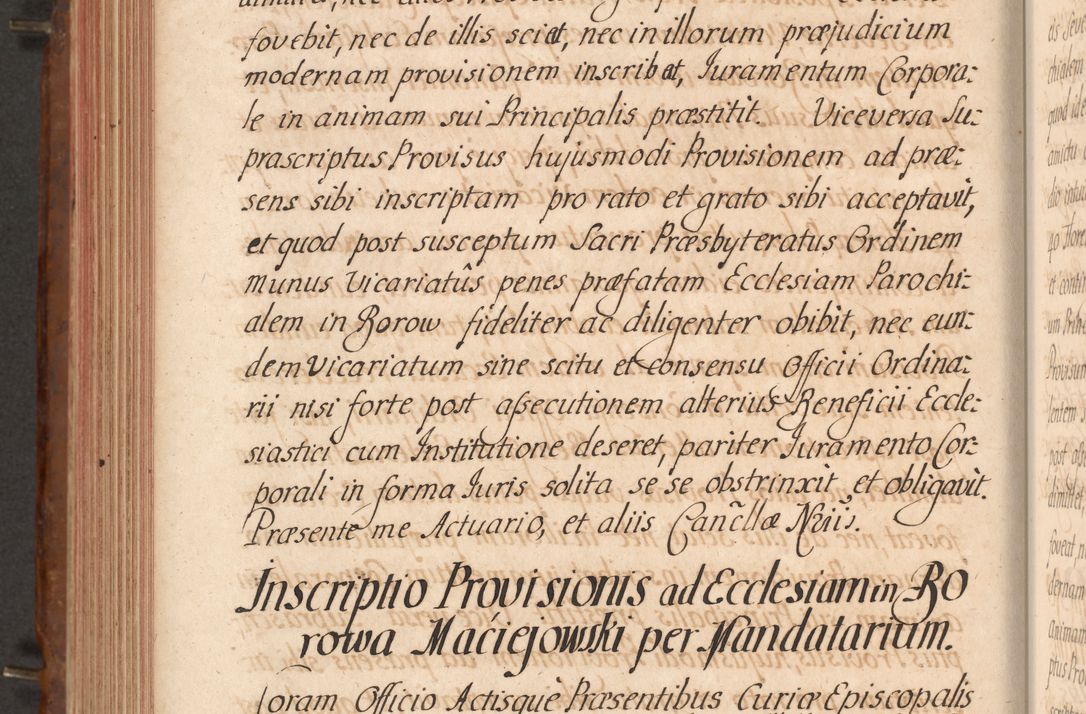 fovebit, nec de illis sciat, nec in illorum præjudicium
modernam provisionem inscribat, Juramentum Corpora:
le in animam sui Principalis præstitit. Viceversa Su:
prascriptus Provisus hujusmodi Provisionem ad præ:
sens sibi inscriptam pro rato et grato sibi acceptavit,
et quod post susceptum Sacri Præsbyteratus Ordinem
munus Vicariatûs penes præfatam Ecclesiam Parochi:
alem in Borow fideliter ac diligenter obibit, nec eun:
dem Vicariatum sine scitu et consensu Officii Ordina:
rii nisi forte post assecutionem alterius Beneficii Eccle:
siastici cum Institutione deseret, pariter Juramento Cor:
porali in forma Juris solita se se obstrinxit et obligavit.
Præsente me Actuario, et aliis Cancllæ Nriis.
Inscriptio Provisionis ad Ecclesiam in Bo
rowa Maciejowski per Mandatarium.
Coram Officio Actisquè Præsentibus Curiæ Episcopalis